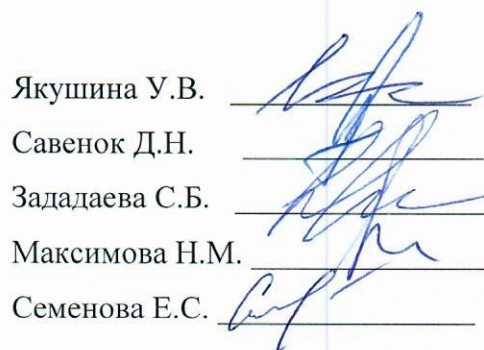 Якушина У.В.
Савенок Д.Н.
Зададаева С.Б.
Максимова Н.М.
Семенова Е.С.